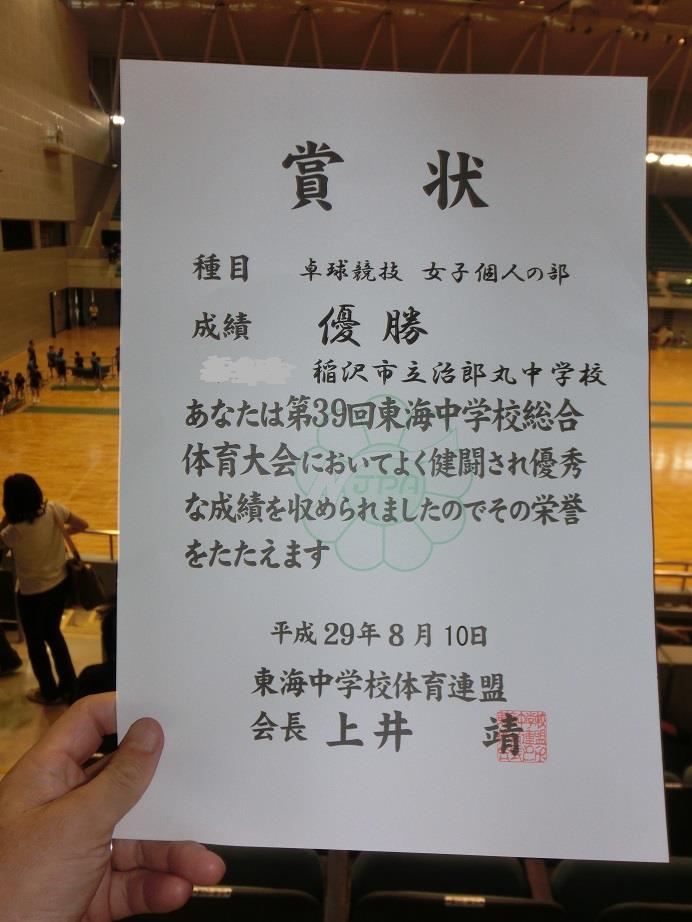 賞 状
種目 卓球競技 女子個人の部
成績 優勝
稲沢市立治郎丸中学校
あなたは第39回東海中学校総合
体育大会においてよく健闘され優秀
な成績を収められましたのでその栄誉
をたたえます
NJPA
平成29年8月10日
東海中学校体育連盟
会長 上井 靖